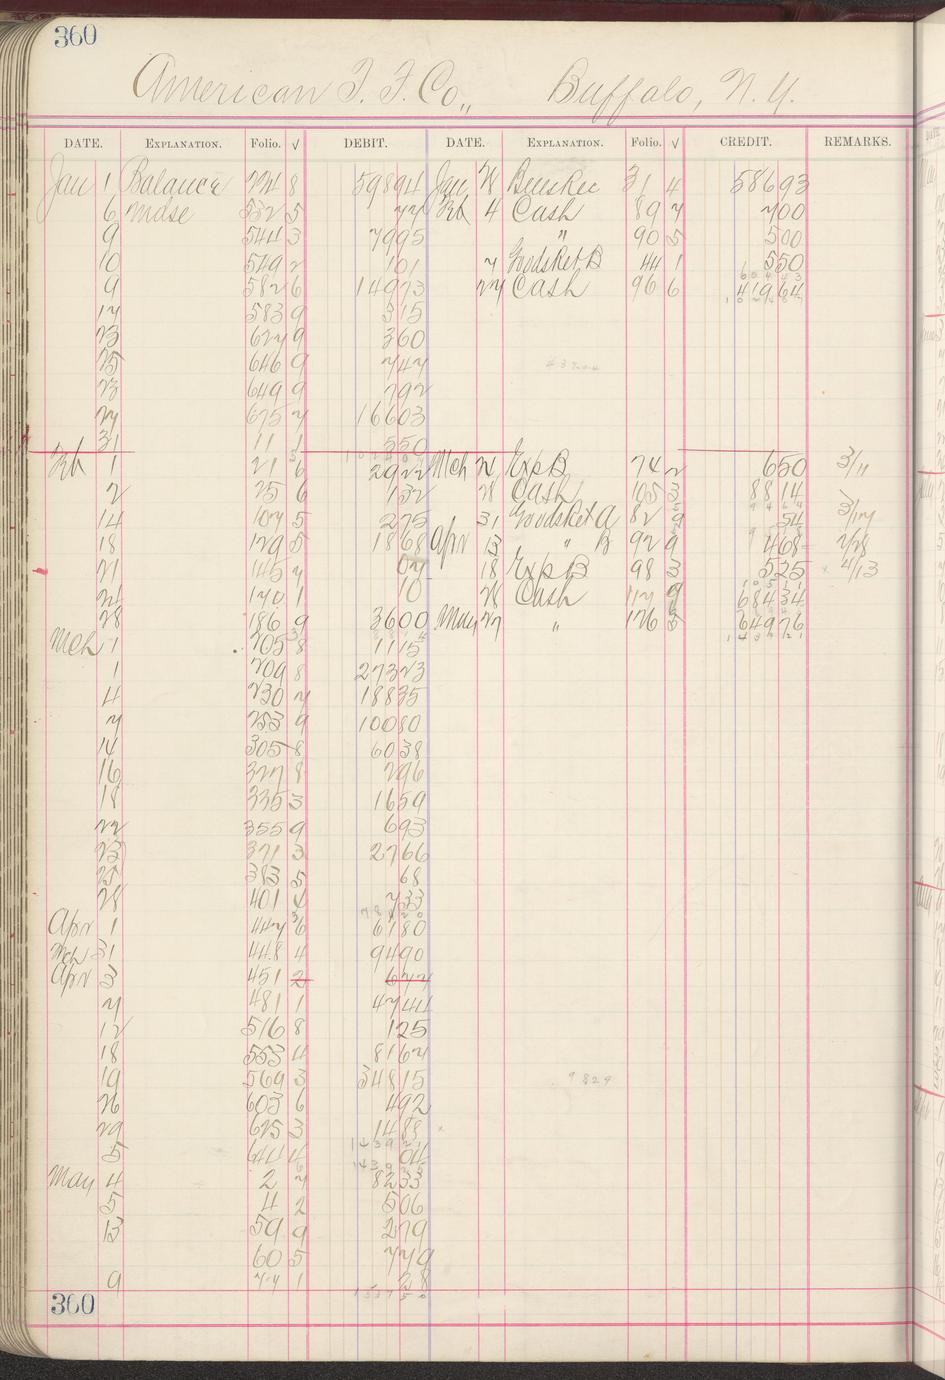 360
American T. F. Co., Buffalo, N. Y.
DATE. EXPLANATION. Folio. √ DEBIT. DATE. EXPLANATION. Folio. √ CREDIT. REMARKS.
Jan 1 Balance 224 8 59894 Jan 31 4 58693
6 Mdse 532 5 77 Feb 4 Cash 89 7 700
9 544 3 7995 " 90 5 500
10 549 2 101 7 Goodsket B 44 1 550
9 582 6 14973 27 Cash 96 6 41964
17 583 9 315
23 627 9 360
25 646 9 747
23 649 9 792
27 675 7 16603
31 11 1 550
Feb 1 21 6 2922 Mch 21 Exp B 74 2 650 3/11
2 25 6 132 28 Cash 105 3 8814
14 107 5 275 31 Goodsket A 82 9 54 3/17
18 129 5 1868 Apr 13 " B 92 9 468 2/28
21 145 7 07 18 Exp B 98 3 525 4/13
21 170 1 10 28 Cash 117 9 68434
28 186 9 3600 May 27 " 126 3 64976
Mch 1 205 8 1115
1 209 8 27323
4 230 7 18835
7 253 9 10080
14 305 8 6038
16 327 8 296
18 335 3 1659
22 355 9 693
23 371 3 2766
25 383 5 68
28 401 4 733
Apr 1 447 6 6180
Mch 31 448 4 9490
Apr 3 451 2 677
7 481 1 4744
12 516 8 125
18 553 4 8167
19 569 3 34815
26 603 6 492
29 625 3 1488
5 644 4 04
May 4 2 7 8233
5 4 2 506
13 59 9 279
60 5 779
9 77 1 28
360